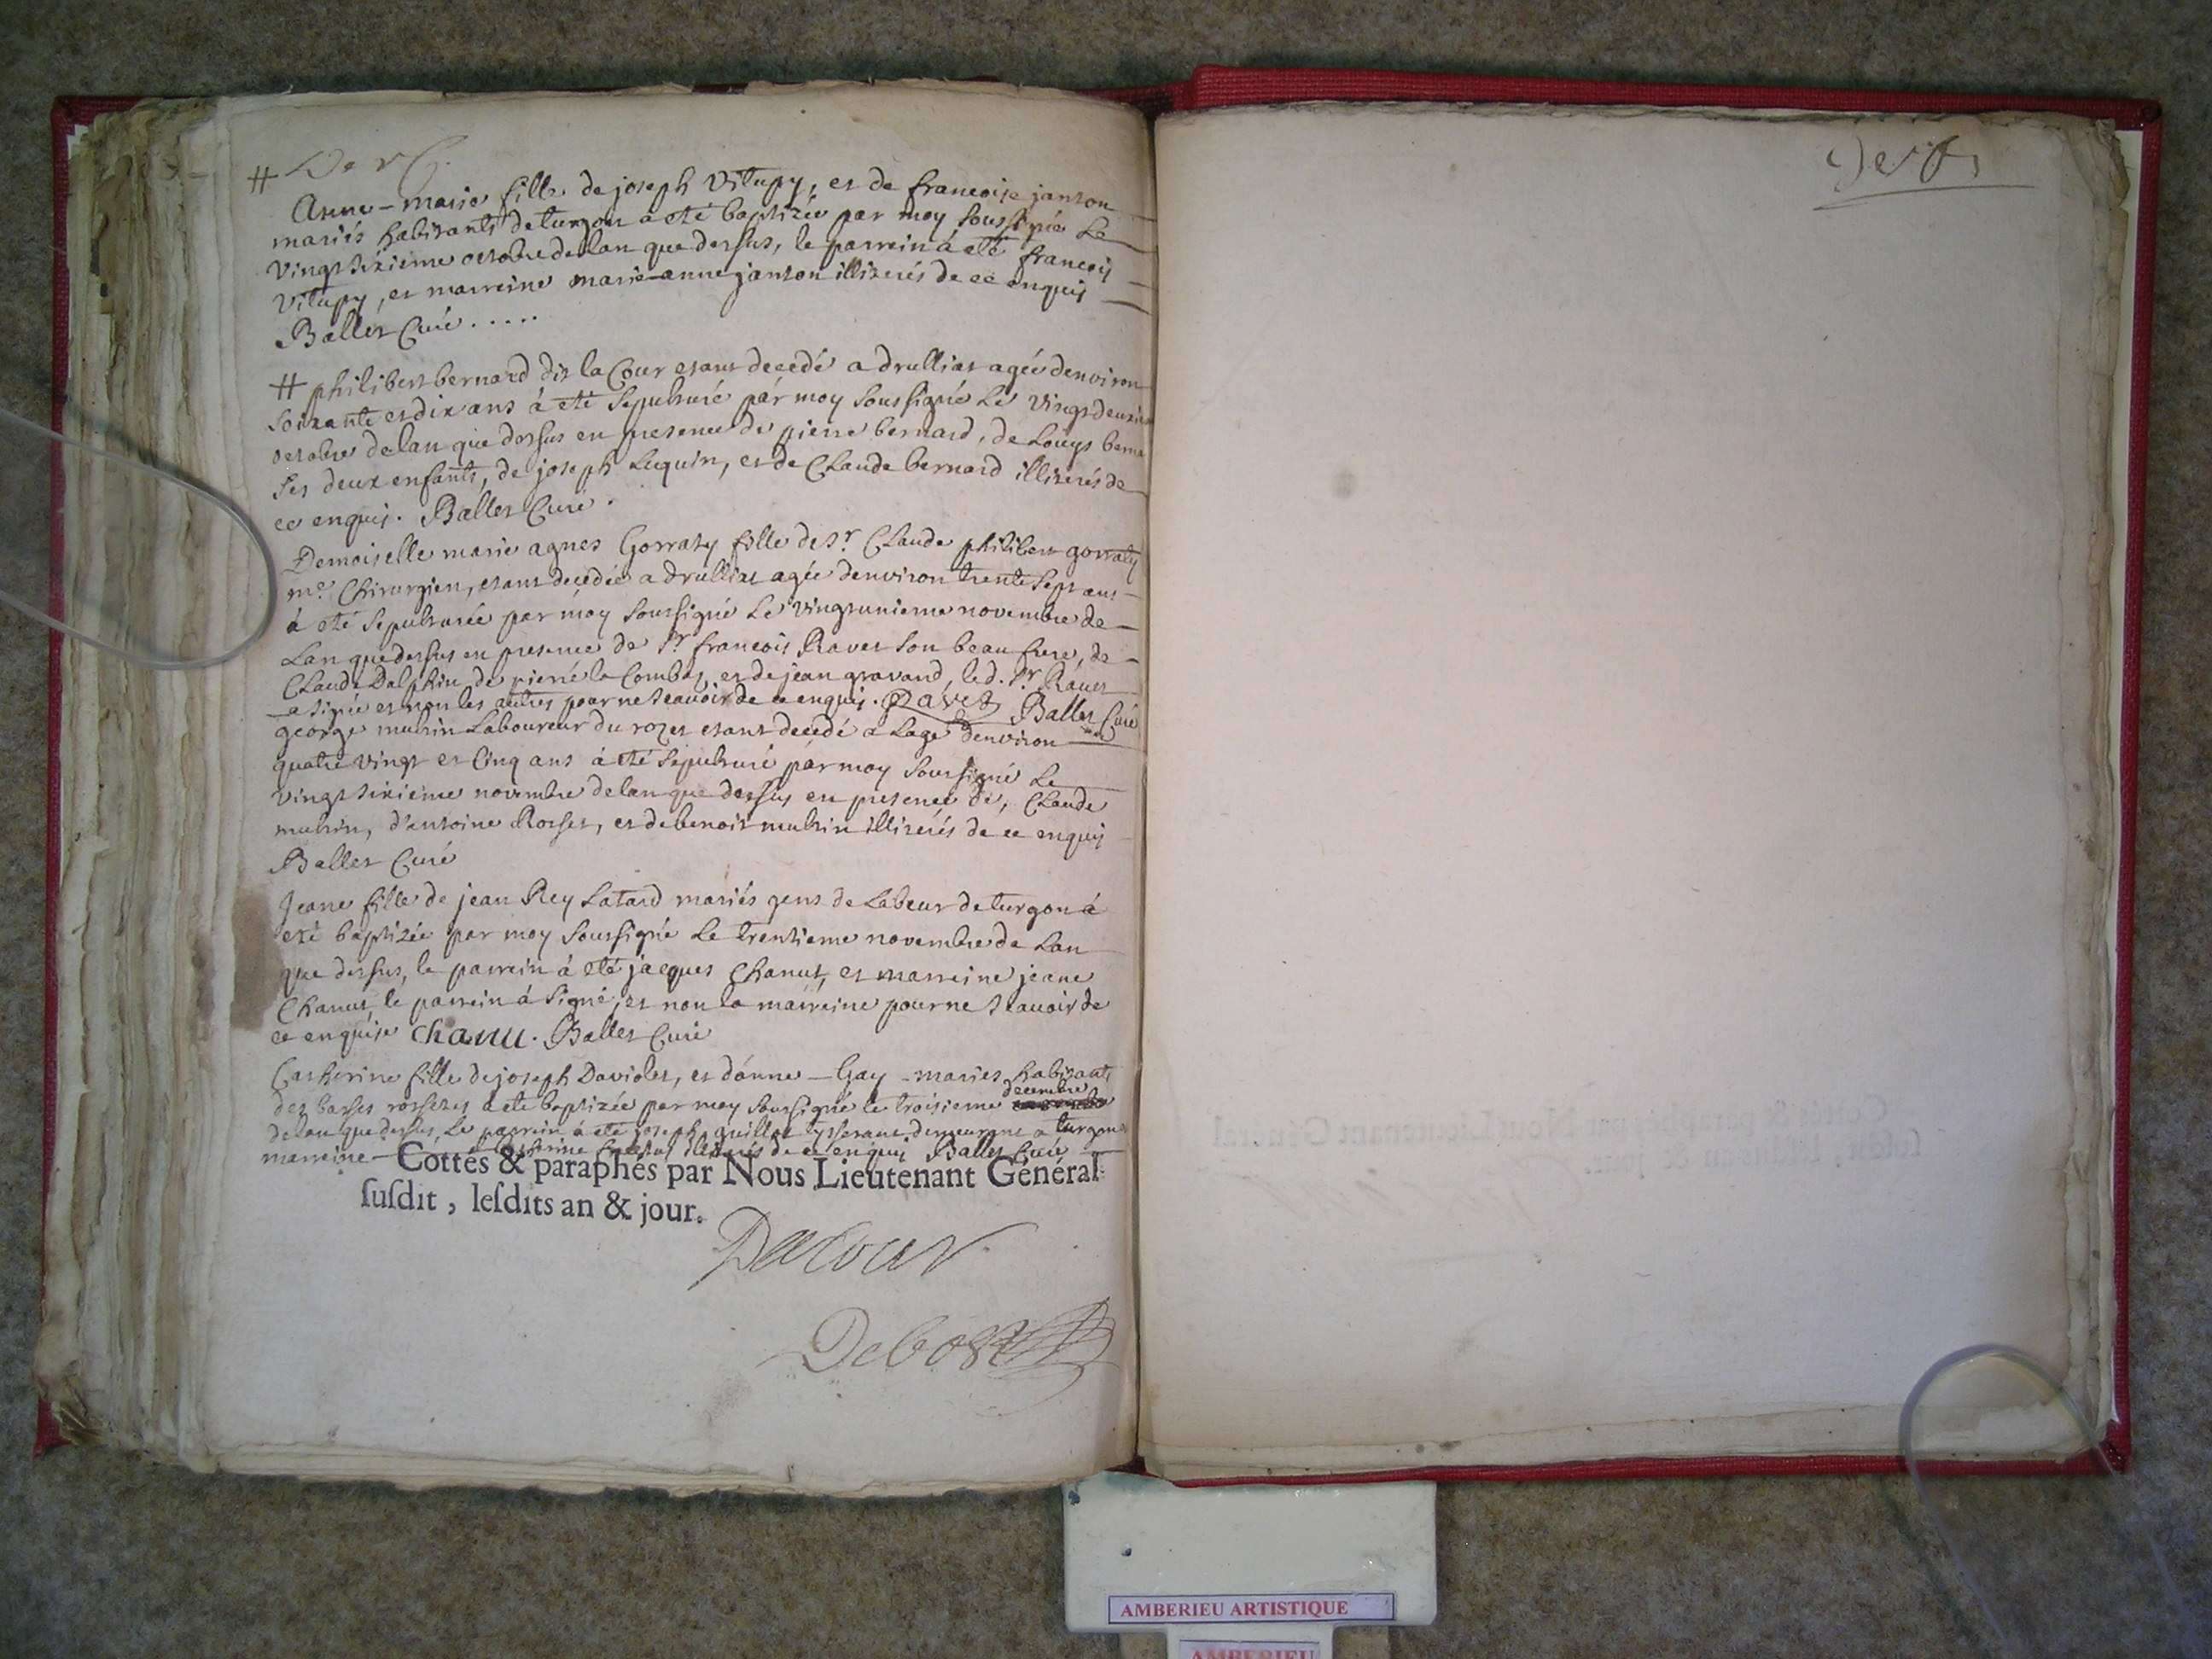 #
Anne-marie fille de joseph Vitupy, et de francoise janton
mariés habitants de turgon a eté baptizée par moy soussigné Le
Vingtsixieme octobre de lan que dessus, le parrein á eté francois
Vitupy, et marreine marie-anne janton illiterés de ce enquis
Ballet Curé.....
# philibert bernard dit la Cour etant decedé a druillat agée denviron
soixante et dix ans á eté sepulturé pár moy soussigné Le Vingtdeuxie
octobre de lan que dessus en presence de pierre bernard, de Louys berna
ses deux enfants, de joseph Luquin, et de Claude bernard illiterés de
ce enquis. Ballet Curé.
Demoiselle marie agnes Gorraty fille de Sr. Claude philibert gorraty
me. Chirurgien, etant decedée a druillat agée denviron trente sept ans
á eté sepulturée par móy soussigné Le Vingtunieme novembre de
Lan que dessus en presence de Sr francois Ravet son beau frere, de
Claude Dalphin, de pierre la Combe, et de jean gravand, led. Sr Ravet
a signé et non les autres pour ne scavoir de ce enquis. Ravet Ballet Curé
george muhin Laboureur du rozet etant decedé a Lage denviron
quatre vingt et Cinq ans á eté sepulturé pár moy soussigné Le
vingt sixieme novembre de lan que dessus en presence de, Claude
muhin, d'antoine Rosset, et de benoit muhin illiterés de ce enquis
Ballet Curé
Jeane fille de jean Rey Latard mariés gens de Labeur de turgon á
eté baptizée par moy soussigné Le trentieme novembre de Lan
que dessus, le parrein á eté jacques Chanut, et marreine jeane
Chanut, le parrein á signé, et non la marreine pour ne scavoir de
ce enquise chanu. Ballet Curé
Catherine fille de joseph Daviolet, et dánne - Gay - mariés habitants
des basses rossetes a eté baptizée par moy soussigné le troisieme decembre
de lan que dessus, Le parrein á eté joseph guillot tysserant demeurant a turgon
marreine Catherine illiterés de ce enquis Ballet Curé
Cottés & paraphés par Nous Lieutenant Général
ſuſdit, leſdits an & jour.
Dacour
Debost
AMBERIEU ARTISTIQUE
AMBERIEU